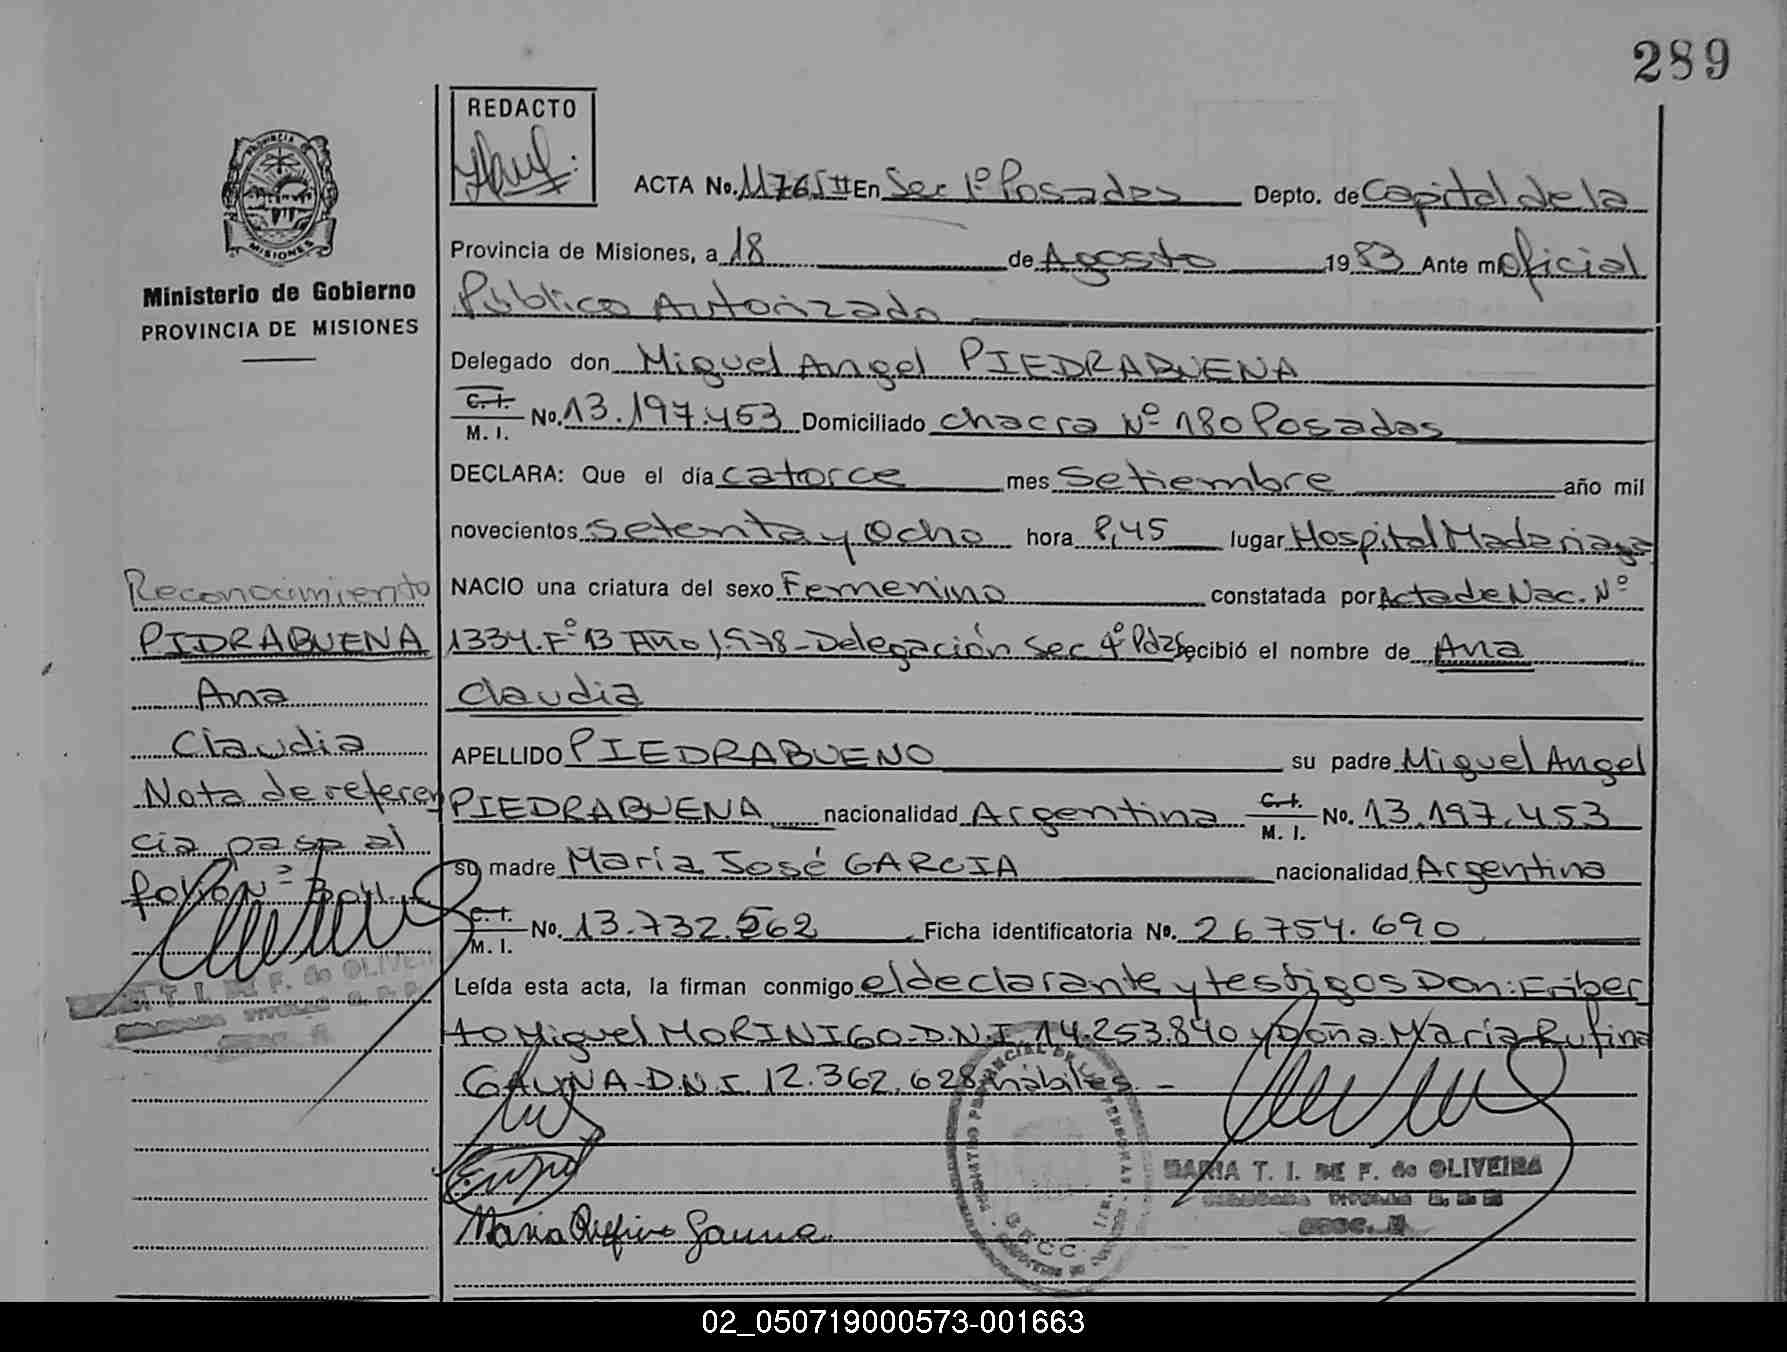 289
REDACTO
ACTA No. 1176 II En Sec 1º Posadas Depto. de Capital de la
Provincia de Misiones, a 18 de Agosto 1983 Ante mí Oficial
Público Autorizado
Ministerio de Gobierno
PROVINCIA DE MISIONES
Delegado don Miguel Angel PIEDRABUENA
C.I.
M. I. No. 13.197.453 Domiciliado chacra Nº 180 Posadas
DECLARA: Que el día catorce mes Setiembre año mil
novecientos setenta y Ocho hora 8,45 lugar Hospital Madariaga
NACIO una criatura del sexo Femenino constatada por Acta de Nac. Nº
1334. Fº 13 Año 1978 - Delegación Sec 4º Pdas recibió el nombre de Ana
Claudia
APELLIDO PIEDRABUENO su padre Miguel Angel
PIEDRABUENA nacionalidad Argentina C.I.
M. I. No. 13.197.453
su madre María José GARCIA nacionalidad Argentina
C.I.
M. I. No. 13.732.562 Ficha identificatoria No. 26.754.690
Leída esta acta, la firman conmigo el declarante y testigos Don: Eriber
to Miguel MORINIGO - D.N.I. 14.253.840 y Doña María Rufina
GAUNA - D.N.I. 12.362.628 hábiles -
Reconocimiento
PIDRABUENA
Ana
Claudia
Nota de referen
cia pasa al
folio Nº
T. I. DE F. de OLIVEIRA
MARIA T. I. DE F. de OLIVEIRA
Maria Rufina Gauna
PROVINCIA
MISIONES
02_050719000573-001663